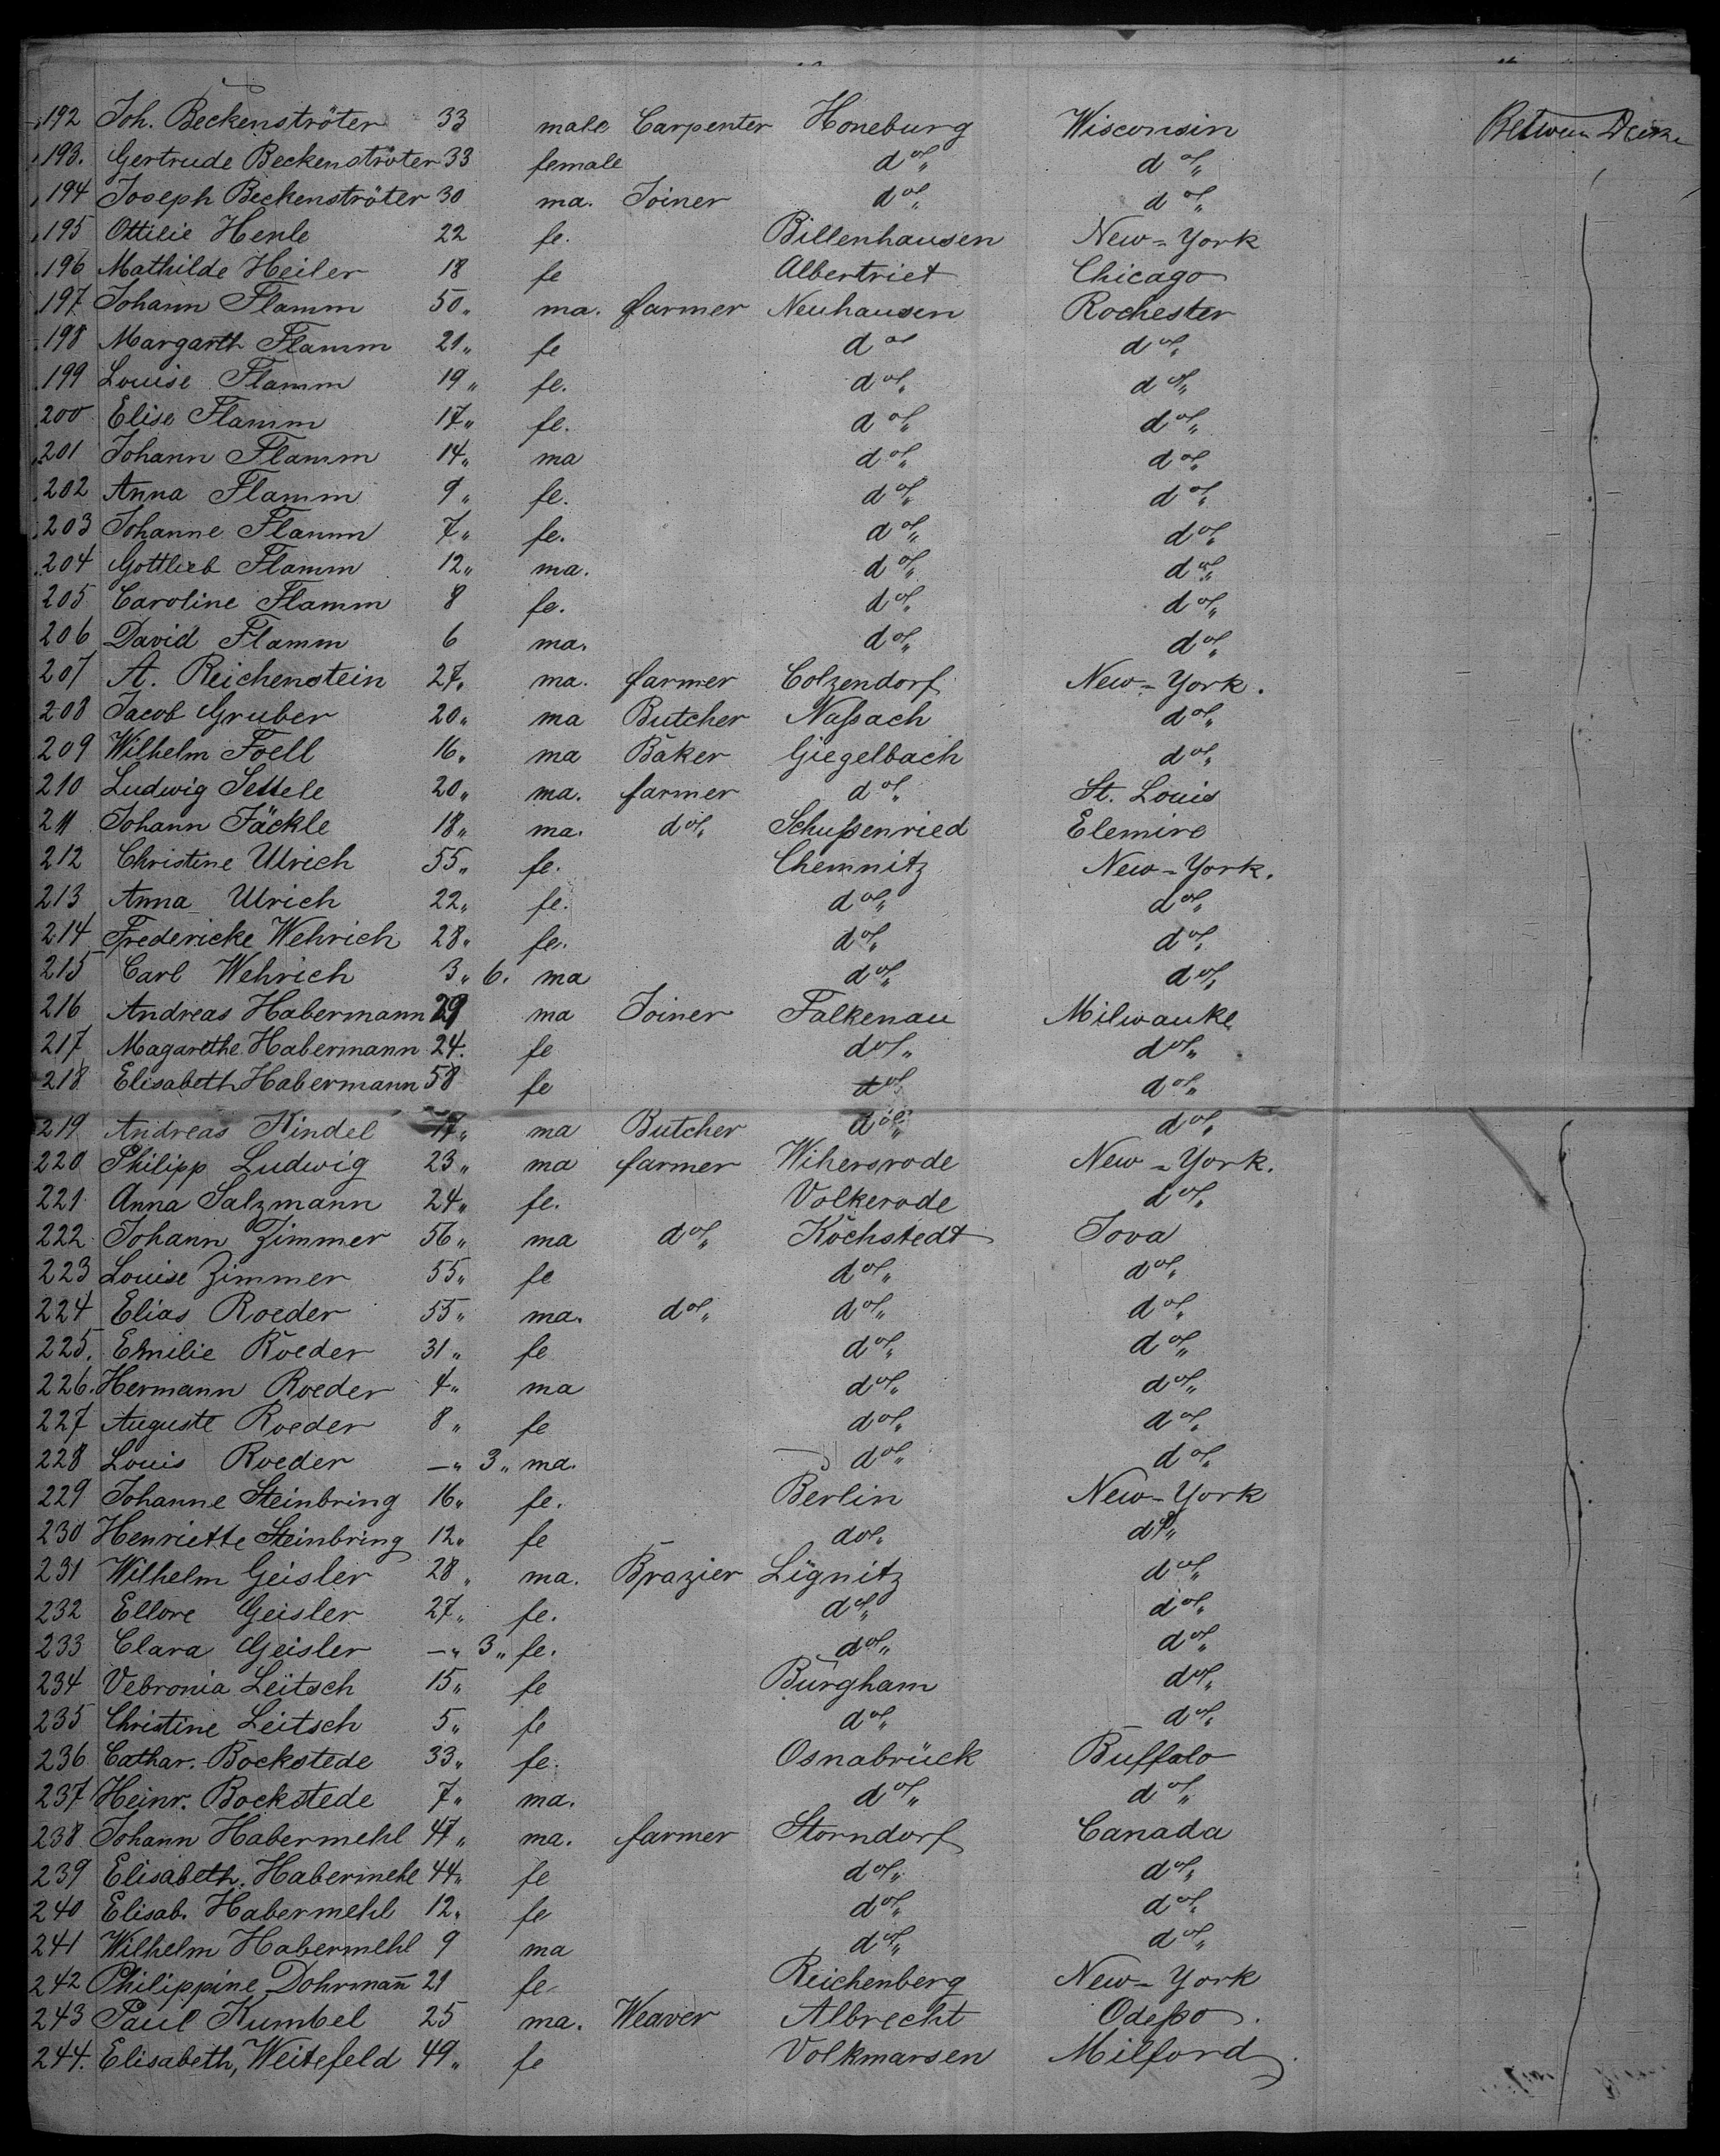 192 Joh. Beckenströter 33 male Carpenter Honeburg Wisconsin Between Deck
193. Gertrude Beckenströter 33 female do/„ do/„
194 Joseph Beckenströter 30 ma. Joiner do/„ do/„
195 Ottilie Henle 22 fe. Billenhausen New-York
196 Mathilde Heiler 18 fe Albertriet Chicago
197 Johann Flamm 50„ ma. farmer Neuhausen Rochester
198 Margarth Flamm 21„ fe do do/„
199 Louise Flamm 19„ fe. do/„ do/„
200 Elise Flamm 17„ fe. do/„ do/„
201 Johann Flamm 14„ ma do/„ do/„
202 Anna Flamm 9„ fe. do/„ do/„
203 Johanne Flamm 7„ fe. do/„ do/„
204 Gottlieb Flamm 12„ ma. do/„ do/„
205 Caroline Flamm 8 fe. do/„ do/„
206 David Flamm 6 ma. do/„ do/„
207 A. Reichenstein 27„ ma. farmer Colzendorf New-York.
208 Jacob Gruber 20„ ma Butcher Naßach do/„
209 Wilhelm Foell 16„ ma Baker Giegelbach do/„
210 Ludwig Settele 20„ ma. farmer do/„ St. Louis
211 Johann Jäckle 18„ ma. do/„ Schußenried Elemire
212 Christine Ulrich 55„ fe. Chemnitz New-York.
213 Anna Ulrich 22„ fe. do/„ do/„
214 Fredericke Wehrich 28„ fe. do/„ do/„
215 Carl Wehrich 3„ 6. ma do/„ do/„
216 Andreas Habermann 29 ma Joiner Falkenau Milwauke
217 Magarethe Habermann 24. fe do/„ do/„
218 Elisabeth Habermann 58 fe do/ do/„
219 Andreas Kindel 17„ ma Butcher do/„ do/„
220 Philipp Ludwig 23„ ma farmer Wihersrode New-York.
221 Anna Salzmann 24„ fe. Volkerode do/„
222 Johann Zimmer 56„ ma do/„ Kochstedt Iova
223 Louise Zimmer 55„ fe do/„ do/„
224 Elias Roeder 55„ ma. do/„ do/„ do/„
225. Emilie Roeder 31„ fe do/„ do/„
226. Hermann Roeder 4„ ma do/„ do/„
227 Auguste Roeder 8„ fe do/„ do/„
228 Louis Roeder —„ 3„ ma. do/„ do/„
229 Johanne Steinbring 16„ fe. Berlin New-York
230 Henriette Steinbring 12„ fe do/„ do/„
231 Wilhelm Geisler 28„ ma. Brazier Lignitz do/„
232 Ellore Geisler 27„ fe. do/„ do/„
233 Clara Geisler —„ 3„ fe. do/„ do/„
234 Vebronia Leitsch 15„ fe Burgham do/„
235 Christine Leitsch 5„ fe do/„ do/„
236 Cathar. Bockstede 33„ fe. Osnabrück Buffalo
237 Heinr. Bockstede 7„ ma. do/„ do/„
238 Johann Habermehl 47„ ma. farmer Storndorf Canada
239 Elisabeth. Habermehl 44„ fe do/„ do/„
240 Elisab. Habermehl 12„ fe do/„ do/„
241 Wilhelm Habermehl 9 ma do/„ do/„
242 Philippine Dohrman̄ 21 fe Reichenberg New-York
243 Paul Kumbel 25 ma. Weaver Albrecht Odeßo.
244. Elisabeth, Weitefeld 49„ fe Volkmarsen Milford